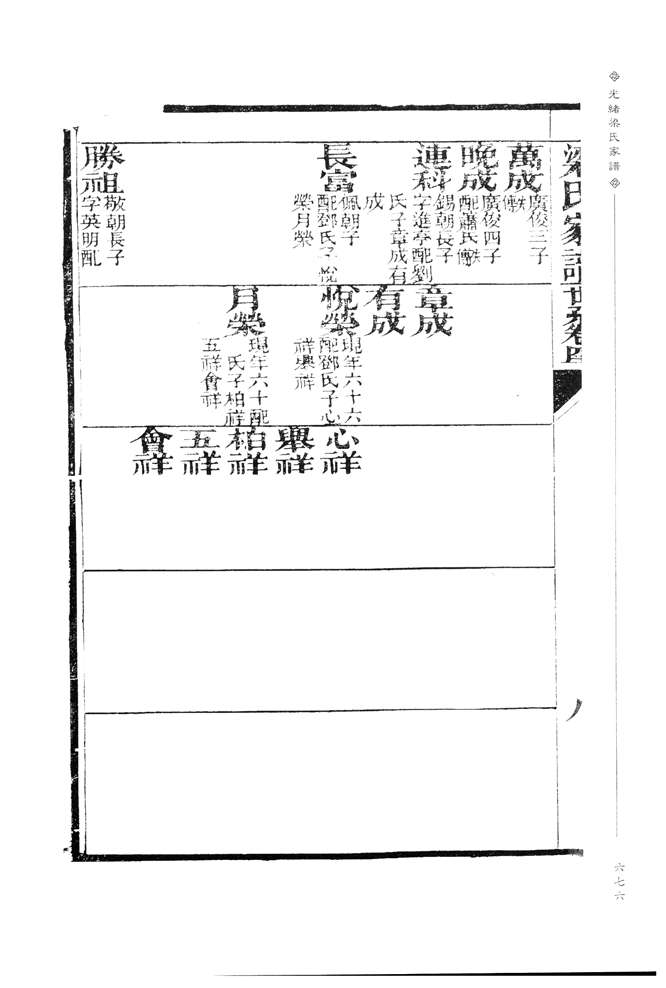 光緒梁氏家譜
六七六
梁氏家譜世系卷四
八
萬成
廣俊三子
傳缺
晚成
廣俊四子
配蕭氏傳缺
連科
錫朝長子
字進亭配劉
氏子章成有
成
長富
佩朝子
配鄧氏子悅
榮月榮
勝祖
敬朝長子
字英明配
章成
有成
悅榮
現年六十六
配鄧氏子心
祥興祥
月榮
現年六十配
氏子柏祥
五祥會祥
心祥
興祥
柏祥
五祥
會祥